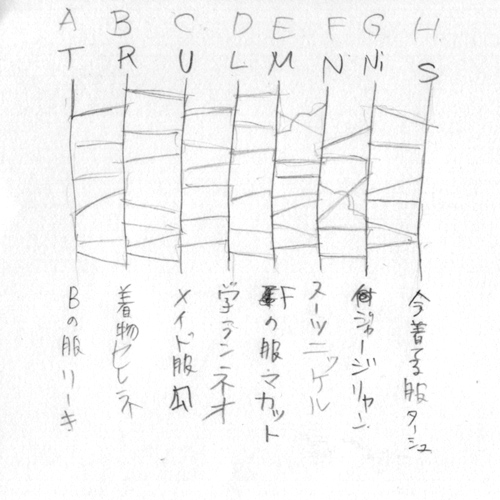 A B C D E F G H
T R U L M N Ni S
Bの服リーキ
着物セレネ
メイド服
学ランネオ
Fの服マカット
スーツニッケル
ジャージリャン
今着てる服ターシュ